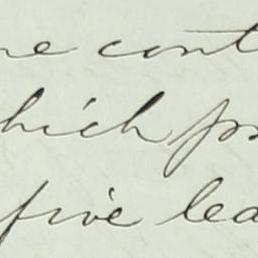 ne cont
which pr
five lea